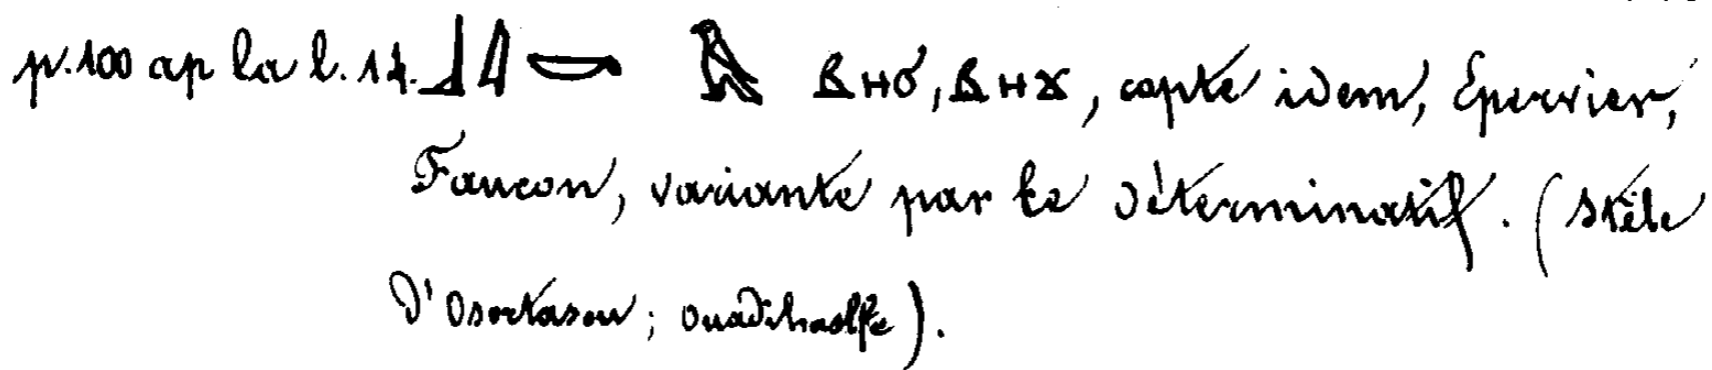 p. 100 ap la l. 14. 𓃀𓇋𓎡 𓅃 ⲃⲏϭ, ⲃⲏϫ, copte idem, Epervier,
Faucon, variante par le déterminatif. (Stèle
d'Osortasen; ouadihalfe).